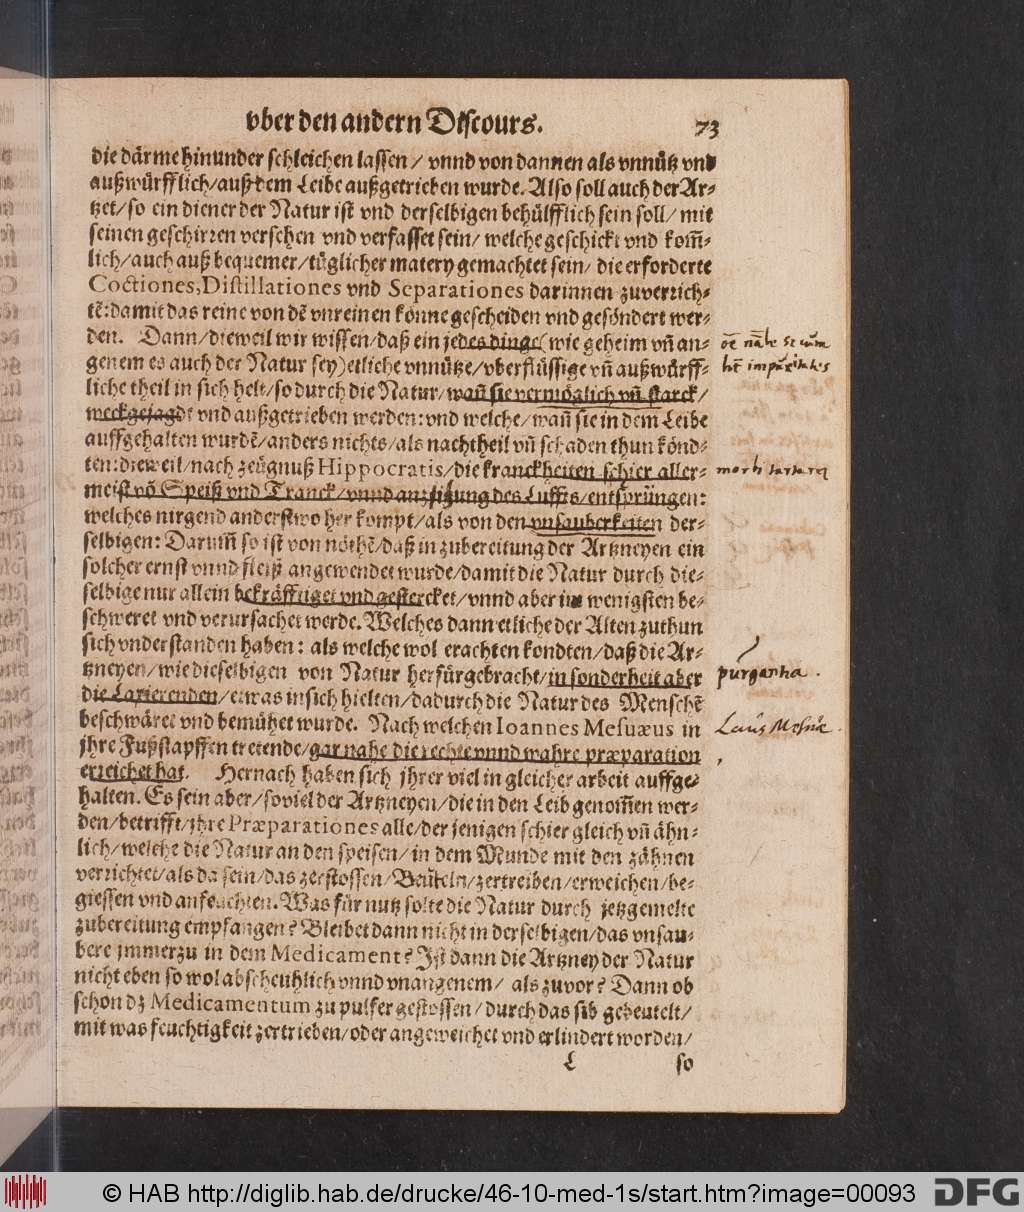 vber den andern Discours. 73
die därme hinunder schleichen lassen/ vnnd von dannen als vnnütz vnd
außwürfflich/auß dem Leibe außgetrieben wurde. Also soll auch der Ar⸗
tzet/so ein diener der Natur ist vnd derselbigen behülfflich sein soll/ mit
seinen geschirren versehen vnd verfasset sein/ welche geschickt vnd kom̃⸗
lich/auch auß bequemer/tüglicher matery gemachtet sein/ die erforderte
Coctiones, Distillationes vnd Separationes darinnen zuverrich⸗
tẽ: damit das reine von dẽ vnreinen könne gescheiden vnd gesöndert wer⸗
den. Dann/dieweil wir wissen/daß ein jedes dinge (wie geheim vñ an⸗
genem es auch der Natur sey) etliche vnnütze/vberflüssige vñ außwürff⸗
liche theil in sich helt/so durch die Natur/wañ sie vermöglich vñ starck/
weckgejagdt vnd außgetrieben werden: vnd welche/wañ sie in dem Leibe
auffgehalten wurdẽ/anders nichts/als nachtheil vñ schaden thun könd⸗
ten: dieweil/nach zeügnuß Hippocratis/die kranckheiten schier aller⸗
meist võ Speiß vnd Tranck/vnnd anziehung des Luffts/entsprüngen:
welches nirgend anderstwo her kompt/als von den vnsauberkeiten der⸗
selbigen: Darum̃ so ist von nöthẽ/daß in zubereitung der Artzneyen ein
solcher ernst vnnd fleiß angewendet wurde/damit die Natur durch die⸗
selbige nur allein bekräfftiget vnd gestercket/vnnd aber im wenigsten be⸗
schweret vnd verursachet werde. Welches dann etliche der Alten zuthun
sich vnderstanden haben: als welche wol erachten kondten/daß die Ar⸗
tzneyen/wie dieselbigen von Natur herfürgebracht/in sonderheit aber
die Laxierenden/etwas in sich hielten/dadurch die Natur des Menschẽ
beschwäret vnd bemühet wurde. Nach welchen Ioannes Mesuæus in
jhre Fußstapffen tretende/gar nahe die rechte vnnd wahre præparation
erreichet hat. Hernach haben sich jhrer viel in gleicher arbeit auffge⸗
halten. Es sein aber/soviel der Artzneyen/die in den Leib genom̃en wer⸗
den/betrifft/jhre Præparationes alle/der jenigen schier gleich vñ ähn⸗
lich/welche die Natur an den speisen/in dem Munde mit den zähnen
verrichtet/als da sein/das zerstossen/Beüteln/zertreiben/erweichen/be⸗
giessen vnd anfeuchten. Was für nutz solte die Natur durch jetzgemelte
zubereitung empfangen? Bleibet dann nicht in derselbigen/das vnsau⸗
bere jmmerzu in dem Medicament? Ist dann die Artzney der Natur
nicht eben so wol abscheuhlich vnnd vnangenem/ als zuvor? Dann ob
schon dz Medicamentum zu pulfer gestossen/durch das sib gebeutelt/
mit was feuchtigkeit zertrieben/oder angeweichet vnd erlindert worden/
L so
impuritates
morbi tartarei
purgantia.
Laus Mesuæ.
© HAB http://diglib.hab.de/drucke/46-10-med-1s/start.htm?image=00093
DFG